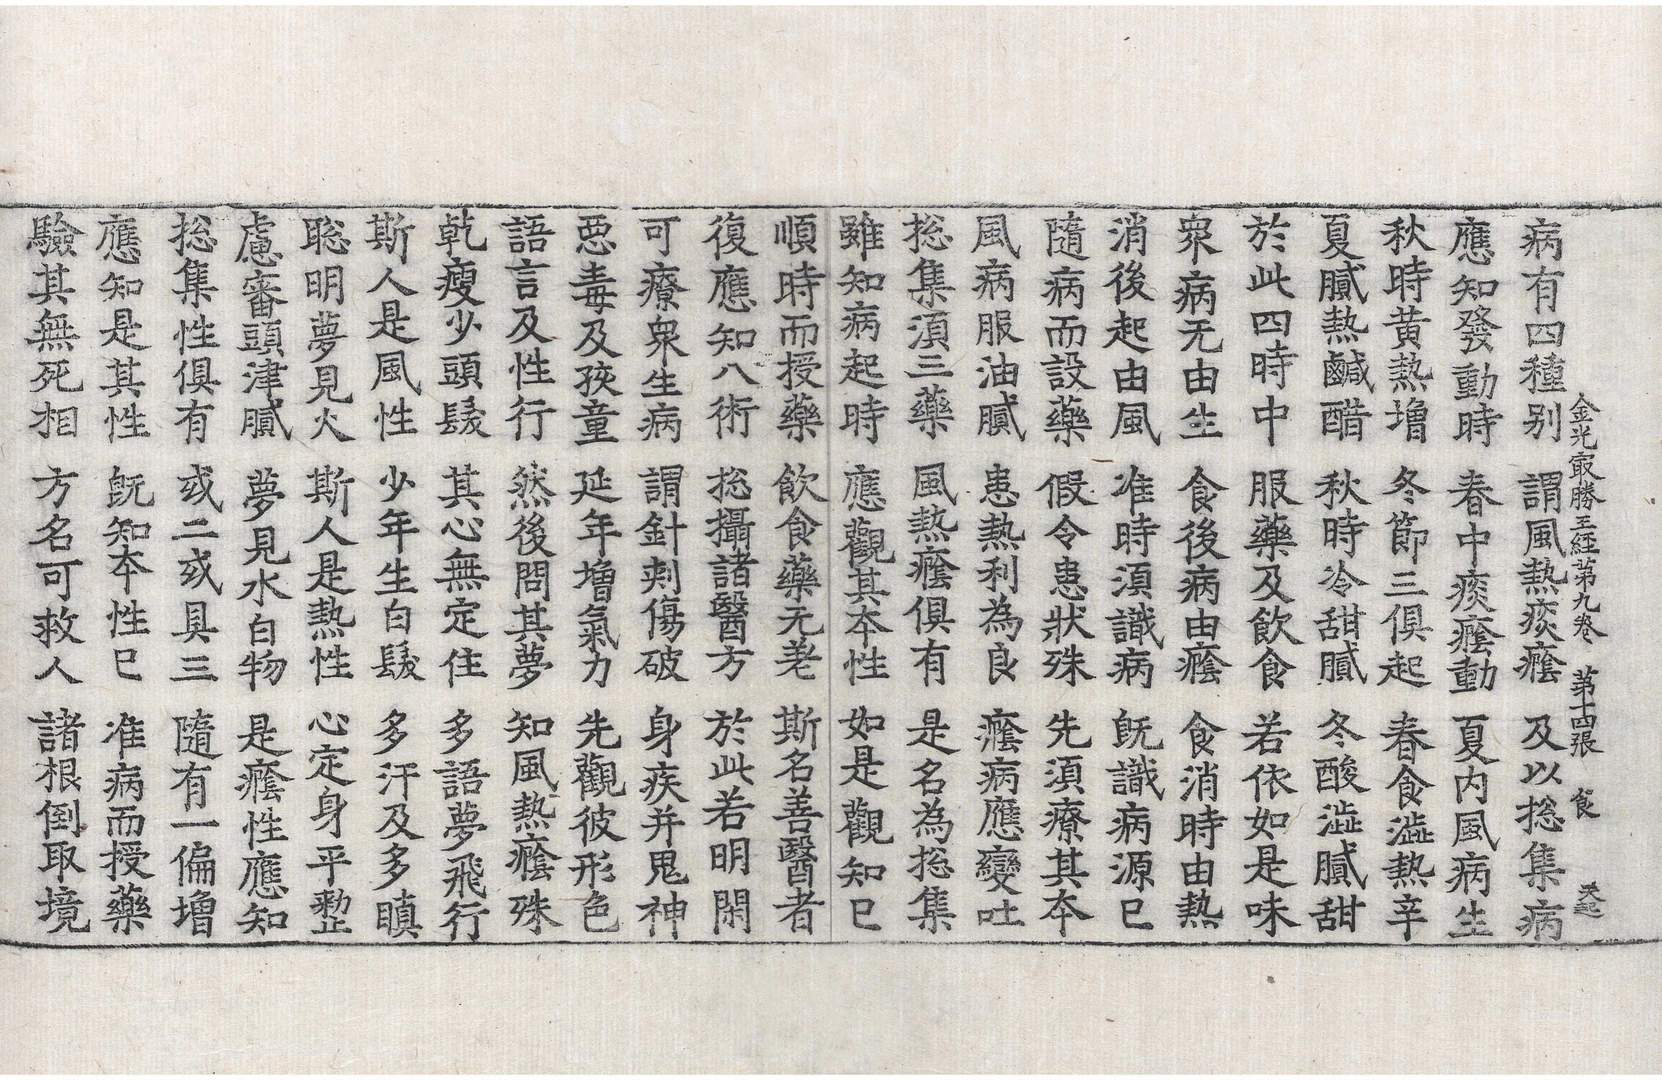 金光㝡勝王経第九卷　第十四張　食　天起
病有四種别　謂風熱痰癊　及以捴集病
應知發動時　春中痰癊動　夏内風病生
秋時黄熱增　冬節三俱起　春食澁熱辛
夏膩熱鹹醋　秋時冷甜膩　冬酸澁膩甜
於此四時中　服藥及飲食　若依如是味
衆病无由生　食後病由癊　食消時由熱
消後起由風　准時湏識病　旣識病源已
隨病而設藥　假令患狀殊　先湏療其夲
風病服油膩　患熱利為良　癊病應變吐
捴集湏三藥　風熱癊俱有　是名為捴集
雖知病起時　應觀其夲性　如是觀知已
順時而授藥　飲食藥无差　斯名善醫者
復應知八術　捴攝諸醫方　於此若明閑
可療衆生病　謂針刺傷破　身疾并鬼神
惡毒及孩童　延年增氣力　先觀彼形色
語言及性行　然後問其夢　知風熱癊殊
乾瘦少頭髮　其心無定住　多語夢飛行
斯人是風性　少年生白髮　多汗及多瞋
聡明夢見火　斯人是熱性　心定身平整
慮審頭津膩　夢見水白物　是癊性應知
捴集性俱有　或二或具三　隨有一偏增
應知是其性　旣知夲性已　准病而授藥
驗其無死相　方名可救人　諸根倒取境